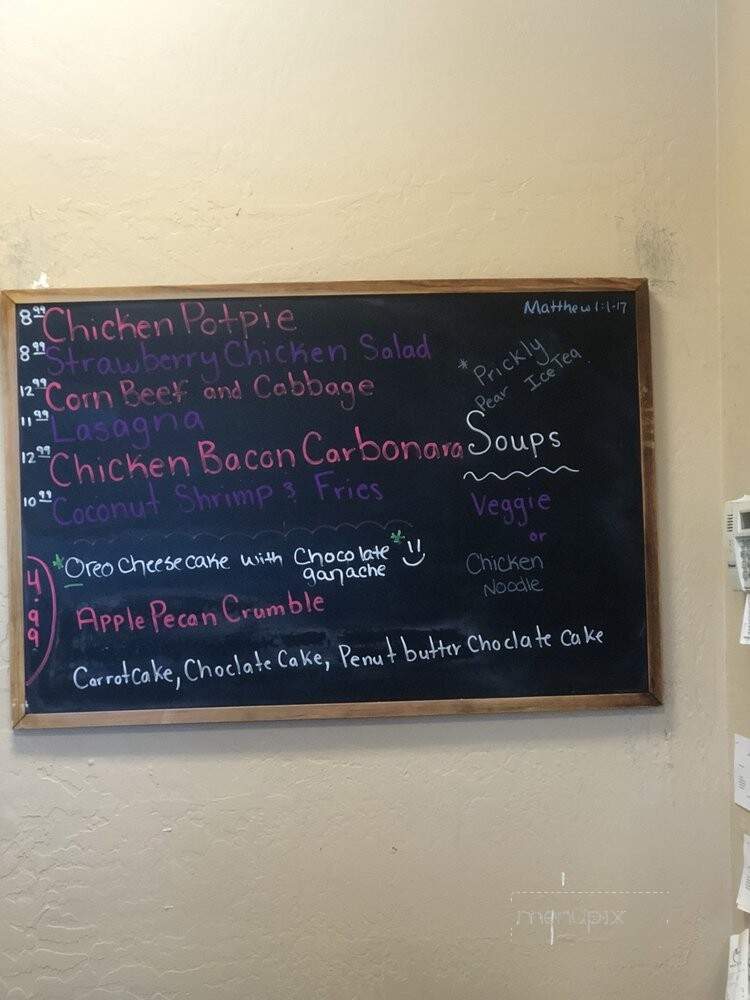 Matthew 1:1-17
8.99 Chicken Potpie
8.99 Strawberry Chicken Salad
12.99 Corn Beef and Cabbage
11.99 Lasagna
12.99 Chicken Bacon Carbonara
10.99 Coconut Shrimp & Fries
* Prickly
Pear Ice Tea
Soups
Veggie
or
Chicken
Noodle
4.99
*Oreo Cheesecake with Chocolate*
ganache
Apple Pecan Crumble
Carrotcake, Choclate Cake, Penut butter Choclate cake
menupix